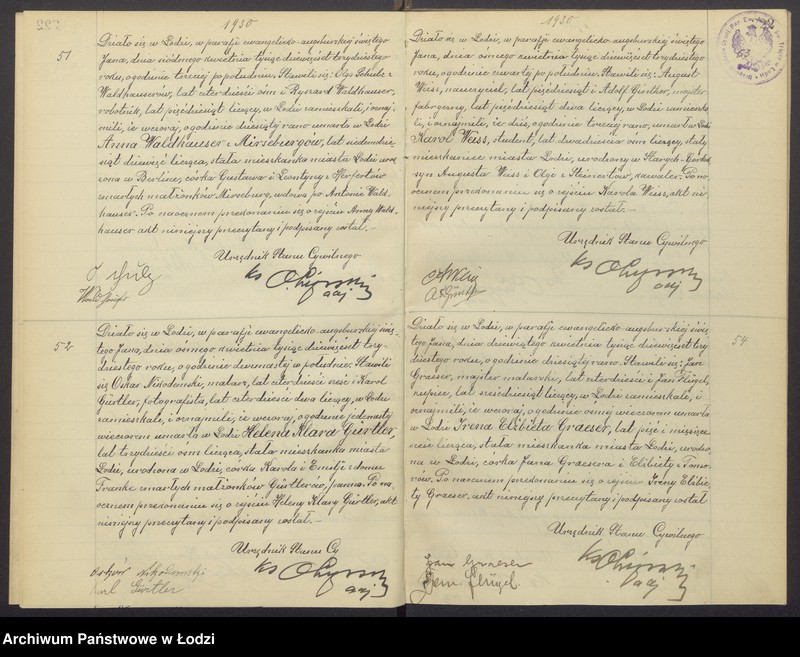 1930
51
Działo się w Łodzi, w parafji ewangelicko-augsburskiej świętego
Jana, dnia siódmego kwietnia tysiąc dziewięćset trzydziestego
roku, o godzinie trzeciej po południu. Stawili się: Olga Schultz z
Waldhauserów, lat czterdzieści osm i Ryszard Waldhauser,
robotnik, lat pięćdziesiąt liczący, w Łodzi zamieszkali, i oznaj-
mili, że wczoraj, o godzinie dziesiątej rano umarła w Łodzi
Anna Waldhauser z Mirseburgów, lat siedmdzie-
siąt dziewięć licząca, stała mieszkanka miasta Łodzi uro-
dzona w Berlinie, córka Gustawa i Leontyny z Herfertów
zmarłych małżonków Mirseburg, wdowa po Antonim Wald-
hauser. Po naocznem przekonaniu się o zejściu Anny Wald-
hauser akt niniejszy przeczytany i podpisany został.—
Urzędnik Stanu Cywilnego
ks
adj
52
Działo się w Łodzi, w parafji ewangelicko-augsburskiej świę-
tego Jana, dnia ósmego kwietnia tysiąc dziewięćset trzy-
dziestego roku, o godzinie dwunastej w południe. Stawili
się Oskar Nikodemski, malarz, lat czterdzieści sześć i Karol
Gürtler, fotografista, lat czterdzieści dwa liczący, w Łodzi
zamieszkali, i oznajmili, że wczoraj, o godzinie jedenastej
wieczorem umarła w Łodzi Helena Klara Gürtler,
lat trzydzieści osm licząca, stała mieszkanka miasta
Łodzi, urodzona w Łodzi, córka Karola i Emilji z domu
Franke zmarłych małżonków Gürtlerów, panna. Po na-
ocznem przekonaniu się o zejściu Heleny Klary Gürtler, akt
niniejszy przeczytany i podpisany został.—
Urzędnik Stanu Cy
ks
adj
Karl Gürtler
1930
Działo się w Łodzi, w parafji ewangelicko-augsburskiej świętego
Jana, dnia ósmego kwietnia tysiąc dziewięćset trzydziestego
roku, o godzinie czwartej po południu. Stawili się: August
Weiss, nauczyciel, lat pięćdziesiąt i Adolf Günther, majster
fabryczny, lat pięćdziesiąt dwa liczący, w Łodzi zamieszka-
li, i oznajmili, że dziś, o godzinie trzeciej rano, umarł w Łodzi
Karol Weiss, student, lat dwadzieścia osm liczący, stały
mieszkaniec miasta Łodzi, urodzony w Starych-
syn Augusta Weiss i Olgi z Steinertów, kawaler. Po na-
ocznem przekonaniu się o zejściu Karola Weiss, akt ni-
niejszy przeczytany i podpisany został.—
Urzędnik Stanu Cywilnego
ks
adj
54
Działo się w Łodzi, w parafji ewangelicko-augsburskiej świę-
tego Jana, dnia dziewiątego kwietnia tysiąc dziewięćset trzy-
dziestego roku, o godzinie dziesiątej rano. Stawili się: Jan
Graeser, majster malarski, lat czterdzieści i Jan Flügel,
kupiec, lat sześćdziesiąt liczący, w Łodzi zamieszkali, i
oznajmili, że wczoraj, o godzinie osmej wieczorem umarła
w Łodzi Irena Elżbieta Graeser, lat pięć i miesięcy
sześć licząca, stała mieszkanka miasta Łodzi, urodzo-
na w Łodzi, córka Jana Graesera i Elżbiety z
rów. Po naocznem przekonaniu się o zejściu Ireny Elżbie-
ty Graeser, akt niniejszy przeczytany i podpisany został
Urzędnik Stanu Cywilnego
ks
adj
Jan Graeser
Jan Flügel.
Archiwum Państwowe w Łodzi